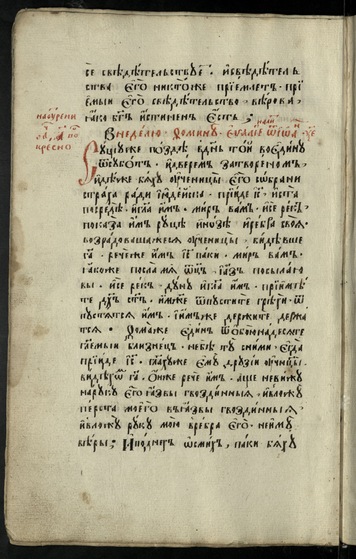 се свѣдѣтельствуетъ. и свѣдѣтель
ства его никтоже приемлетъ. при
емыи его свѣдѣтельство. вѣрова,
яко бг҃ъ истиненъ есть;
В недѣлю Ѳомину еѵⷢ҇лїе ѿ іѡⷩ҇
Сущуже поздѣ въ днь҃ тои во едину
ѿ суботъ. и дверемъ затвореномъ,
идѣже бяху оученицы его собрани
страха ради іюдеиска. прїиде іс҃. и ста
посредѣ. и гл҃а имъ. миръ вамъ. и се рекъ,
показа имъ руцѣ и нозѣ и ребра своя.
возрадовашажеся оученицы, видѣвше
га҃. рече же имъ іс҃ паки. миръ вамъ.
якоже посла мя оц҃ъ и азъ посылаю
вы. и се рекъ дуну и гл҃а имъ. прїимѣ
те дх҃ъ ст҃ъ. имже ѿпустите грѣхи. ѿ
пустятся имъ. и имъже держите держа
тся. Ѳома же единъ ѿ обоюнадесяте
гл҃емыи близнецъ. не бѣ ту с ними. егда
прїиде іс҃. гл҃аху же ему друзїи оучн҃цы.
видѣхомъ га҃. он же рече имъ. аще не вижу
на руку его язвы гвоздинныя, и вложу
перста моего въ язвы гвоздинныя,
и вложу руку мою в ребра его. не иму
вѣры; И по днехъ осмихъ, паки бяху